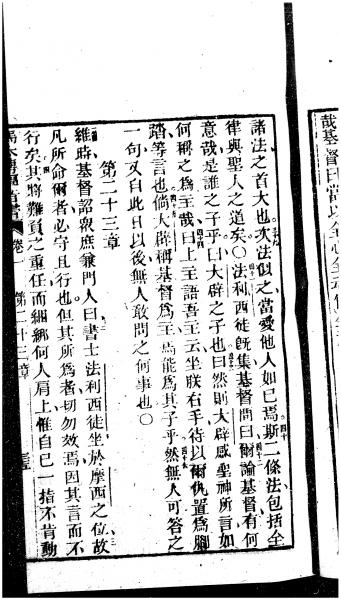 哉基督曰
諸法之首大也次法似之當愛他人如己焉斯二條法包括全
律與聖人之道矣○法利西徒既集基督問曰爾論基督有何
意哉是誰之子乎曰大辟之子也曰然則大辟感聖神所言如
何稱之爲主哉曰上主語吾主云坐朕右手待以爾仇置爲脚
踏等言也倘大辟稱基督爲主焉能爲其子乎然無人可答之
一句又自此日以後無人敢問之何事也○
第二十三章
維時基督詔衆庶兼門人曰書士法利西徒坐於摩西之位故
凡所命爾者必守且行也但其所爲者切勿效焉因其言而不
行矣其將難負之重任而綑綁何人肩上惟自己一指不肯動
卷一 第二十三章